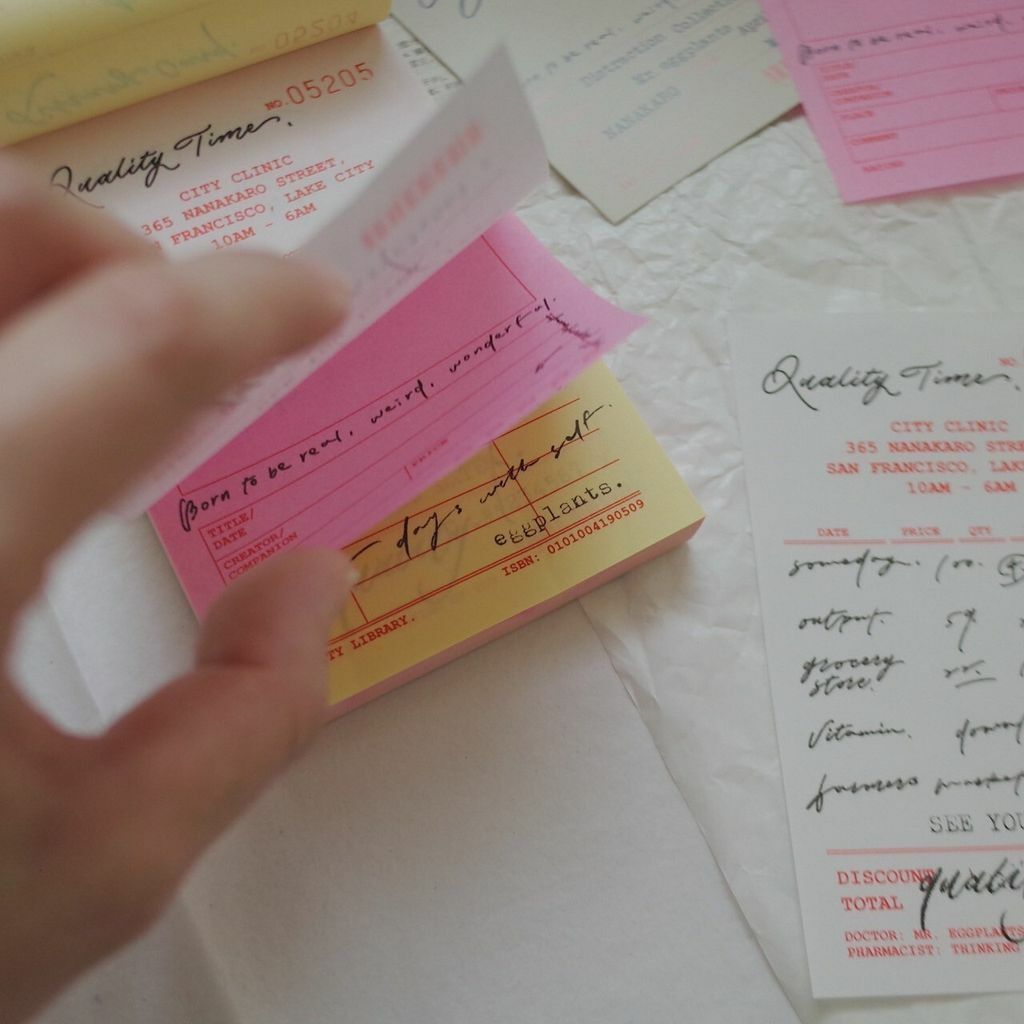 NO.05205
Quality Time.
CITY CLINIC
365 NANAKARO STREET,
FRANCISCO, LAKE CITY
10AM - 6AM
Born to be real, weird, wonderful.
TITLE/
DATE
CREATOR/
COMPANION
days with self.
eggplants.
ISBN: 0101004190509
TY LIBRARY.
NANAKARO
Born to be real, weird,
Quality Time.
NO.
CITY CLINIC
365 NANAKARO STRE
SAN FRANCISCO, LAK
10AM - 6AM
DATE PRICE QTY
someday. 100.
output. 59
grocery
store.
Vitamin.
farmers market
SEE YOU
DISCOUNT
TOTAL
quali
DOCTOR: MR. EGGPLANTS
PHARMACIST: THINKING